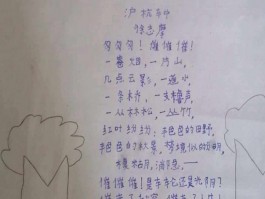 沪杭车中
徐志摩
匆匆匆！催催催！
一卷烟，一片山，
几点云影，一道水，
一条桥，一支橹声，
一林松，一丛竹，
红叶纷纷，艳色的田野，
艳色的秋景，梦境似的分明，
模糊，消隐，——
催催催！是车轮还是光阴？